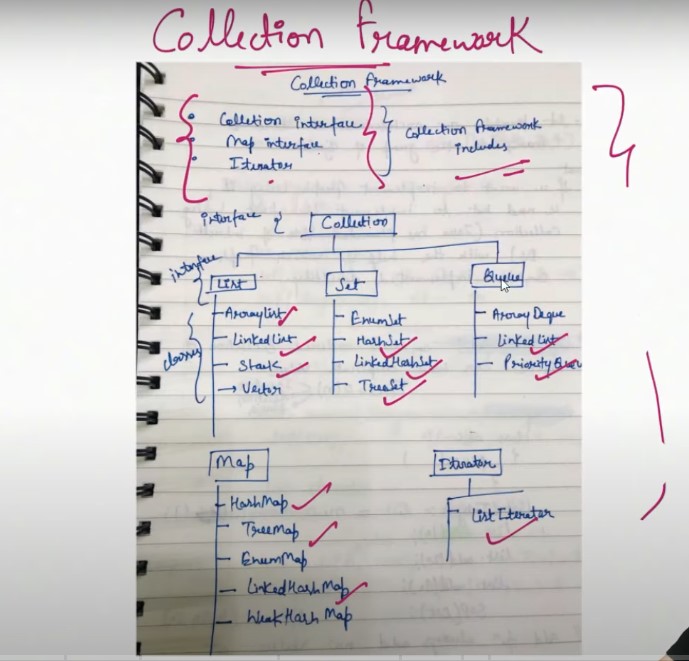 Collection framework
Collection framework
Colletion interface
Map interface
Iterator
Collection framework
includes
interface
Collection
interface
List
Set
Queue
classes
ArrayList
LinkedList
Stack
Vector
EnumSet
HashSet
LinkedHashSet
TreeSet
Array Deque
Linked List
Priority Queu
Map
HashMap
TreeMap
EnumMap
LinkedHashMap
WeakHash Map
Iterator
ListIterator